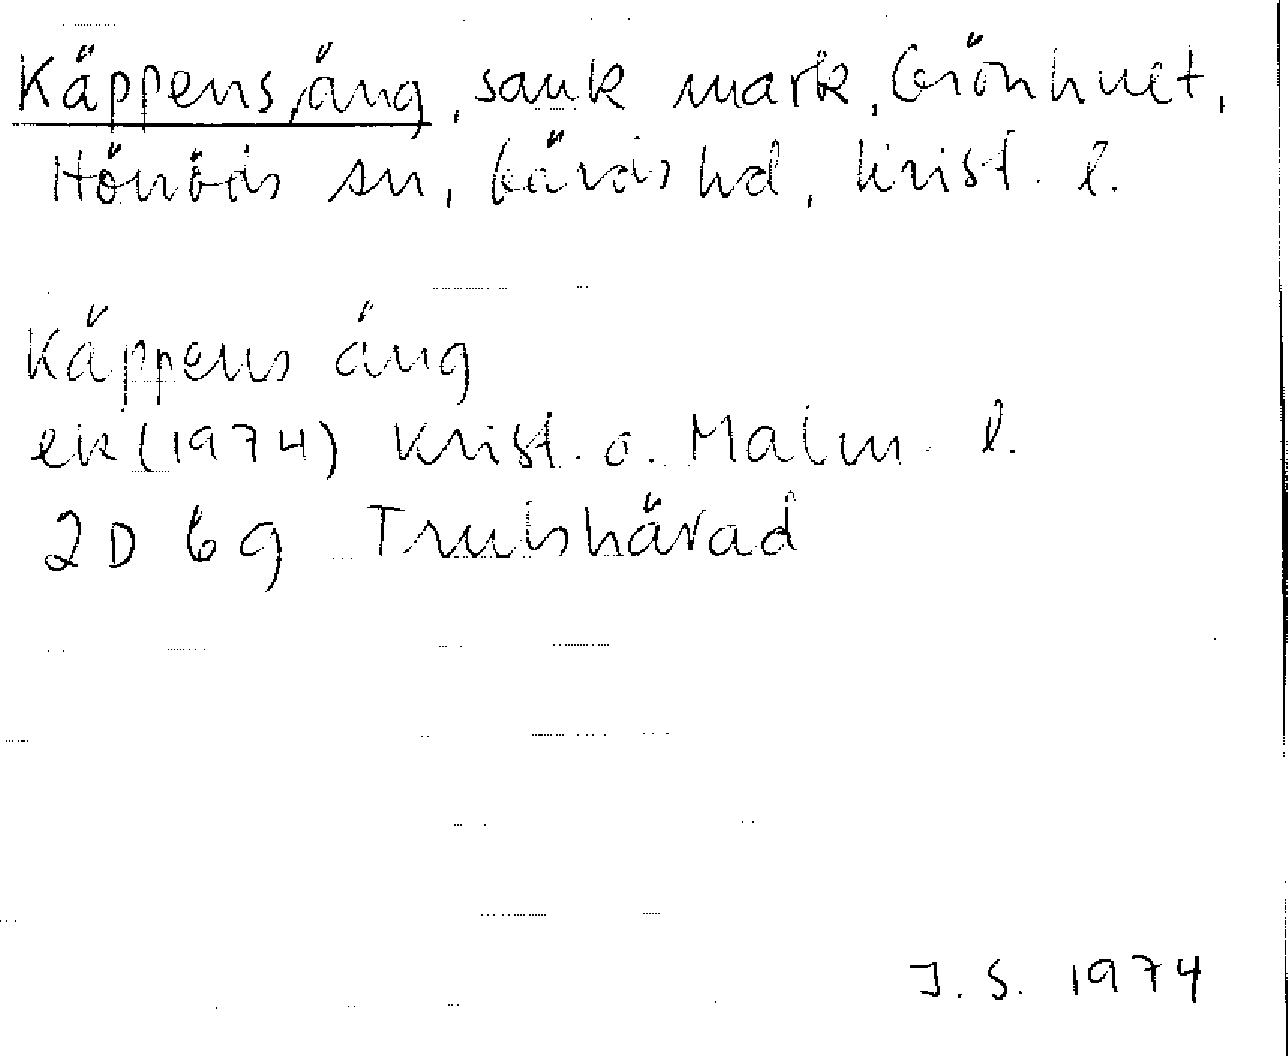 Käppens äng, sank mark, Grönhult,
Hönöds sn, Gärds hd, Krist. l.
Käppens äng
ek (1974) Krist. o. Malm. l.
2D 6g Trulshärad
J. S. 1974